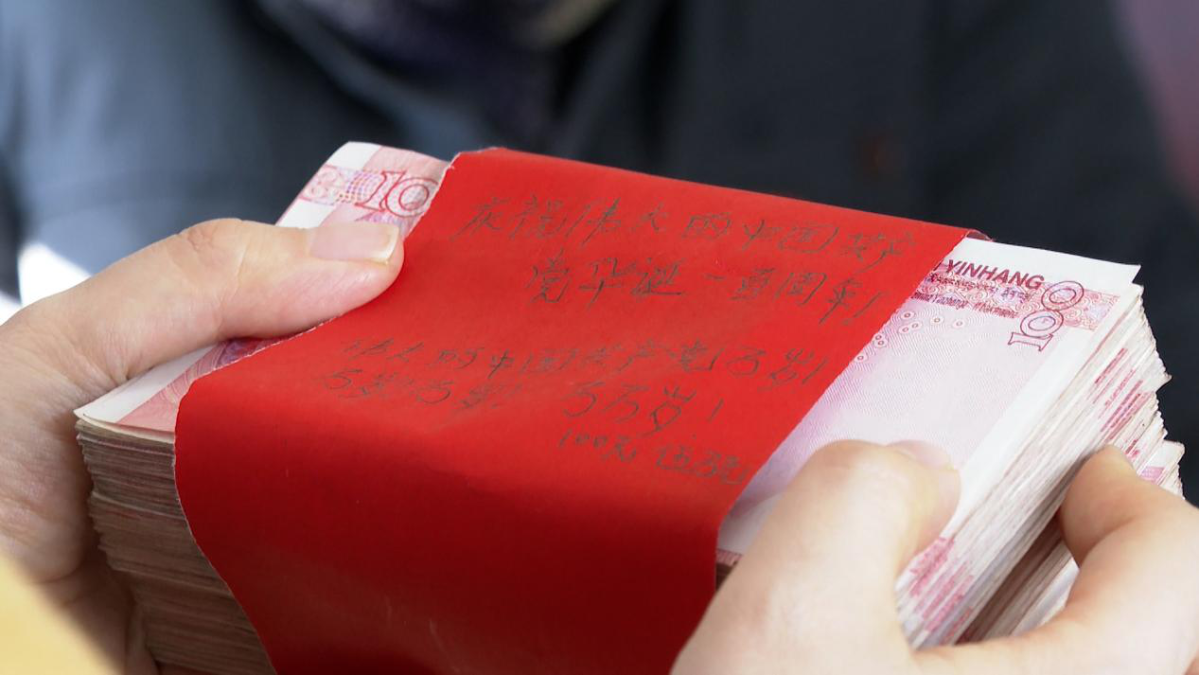 庆祝伟大的中国共产
党华诞一百周年!
伟大的中国共产党万岁!
万岁万岁! 万万岁!
100元
YINHANG
100
10